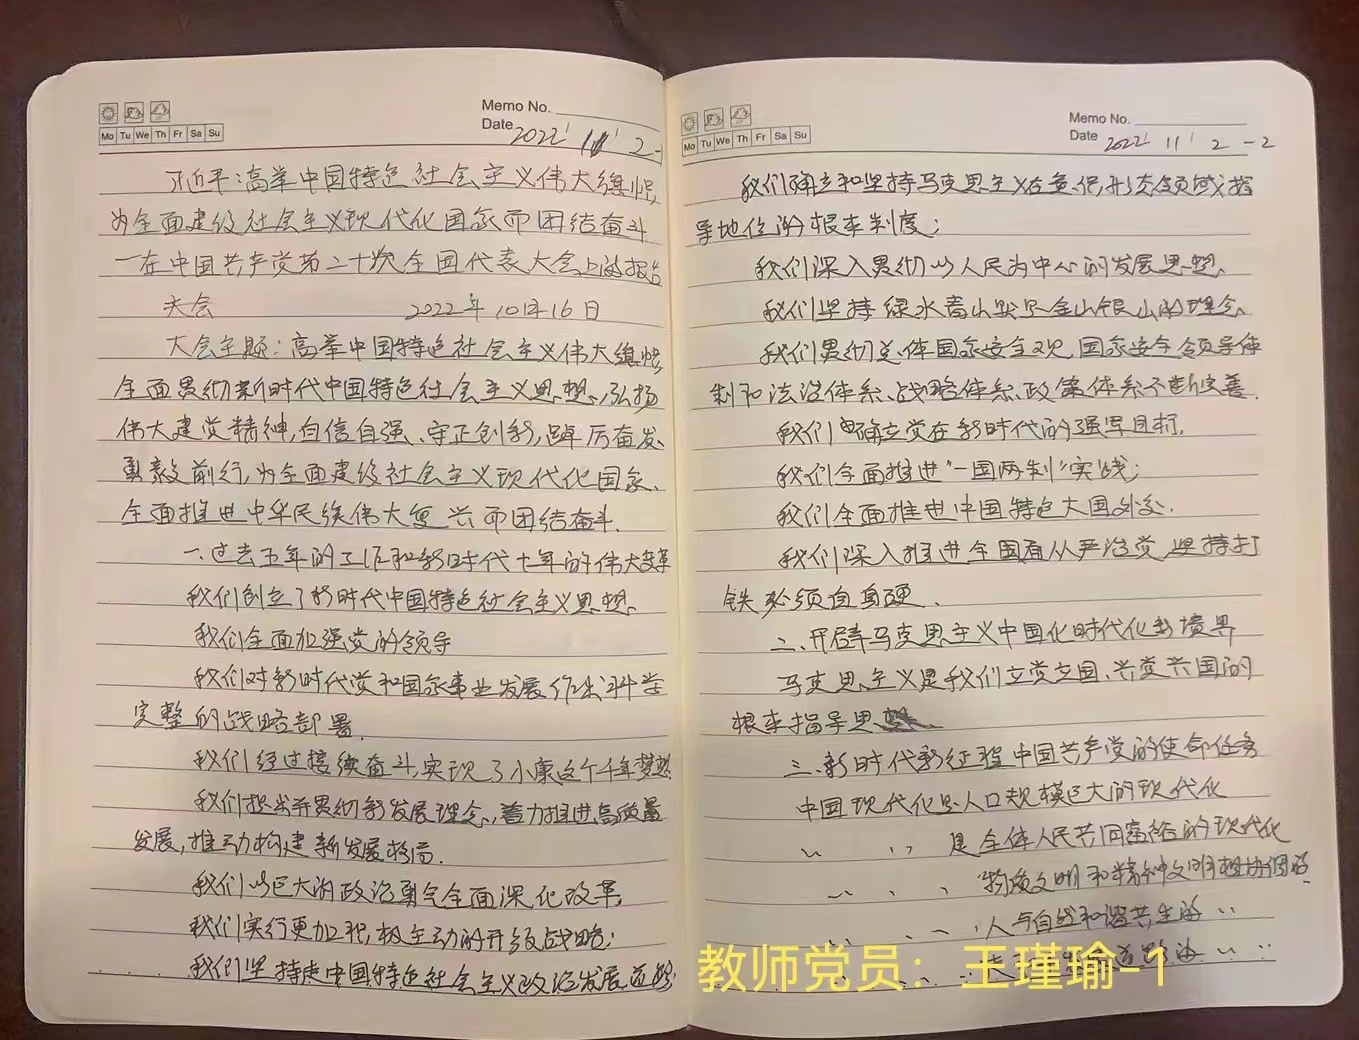 Memo No.
Date 2022 11 2 -
Mo Tu We Th Fr Sa Su
习近平:高举中国特色社会主义伟大旗帜,
为全面建设社会主义现代化国家而团结奋斗
一在中国共产党第二十次全国代表大会上的报告
大会 2022年10月16日
大会主题:高举中国特色社会主义伟大旗帜
全面贯彻新时代中国特色社会主义思想,弘扬
伟大建党精神,自信自强、守正创新,踔厉奋发、
勇毅前行,为全面建设社会主义现代化国家、
全面推进中华民族伟大复兴而团结奋斗.
一.过去五年的工作和新时代十年的伟大变革
我们创立了新时代中国特色社会主义思想.
我们全面加强党的领导
我们对新时代党和国家事业发展作出科学
完整的战略部署.
我们经过接续奋斗,实现了小康这个千年梦想
我们提出并贯彻新发展理念,着力推进高质量
发展,推动构建新发展格局.
我们以巨大的政治勇气全面深化改革,
我们实行更加积极主动的开放战略;
我们坚持走中国特色社会主义政治发展道路
Memo No.
Date 2022 11 2 -2
Mo Tu We Th Fr Sa Su
我们确立和坚持马克思主义在意识形态领域指
导地位的根本制度;
我们深入贯彻以人民为中心的发展思想.
我们坚持绿水青山就是金山银山的理念.
我们贯彻总体国家安全观,国家安全领导体
制和法治体系、战略体系、政策体系不断完善.
我们确立党在新时代的强军目标.
我们全面推进"一国两制"实践;
我们全面推进中国特色大国外交.
我们深入推进全面从严治党,坚持打
铁必须自身硬.
二、开辟马克思主义中国化时代化新境界
马克思主义是我们立党立国、兴党兴国的
根本指导思想
三.新时代新征程中国共产党的使命任务
中国现代化是人口规模巨大的现代化
〃 〃 是全体人民共同富裕的现代化
〃 〃 〃 物质文明和精神文明相协调的
〃 〃 〃 人与自然和谐共生的 〃
教师党员：王瑾瑜-1